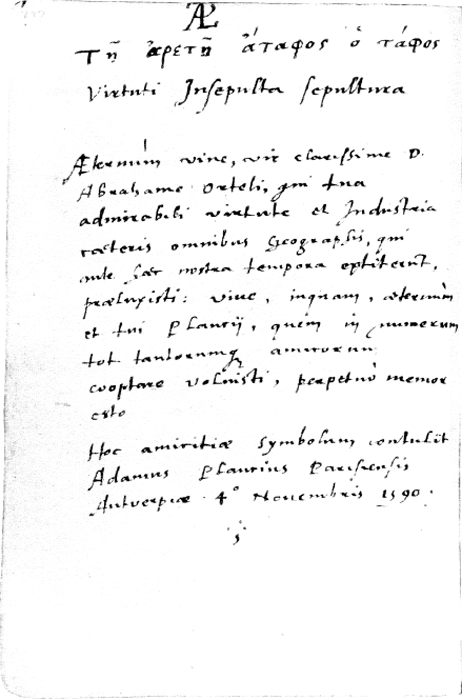 Æ
Τῇ ἀρετῇ ἄταφος ὁ τάφος
Virtuti Insepulta sepultura
Æternùm viue, vir clarissime D.
Abrahame Orteli, qui tua
admirabili virtute et Industria
cæteris omnibus Geographis, qui
ante hæc nostra tempora extiterunt,
præluxisti: viue, inquam, æternùm
et tui Plancij, quem in numerum
tot tantorumq amicorum
cooptare voluisti, perpetuò memor
esto
Hoc amicitiæ symbolum contulit
Adamus Plancius Parisiensis
Antverpiæ 4° Novembris 1590.